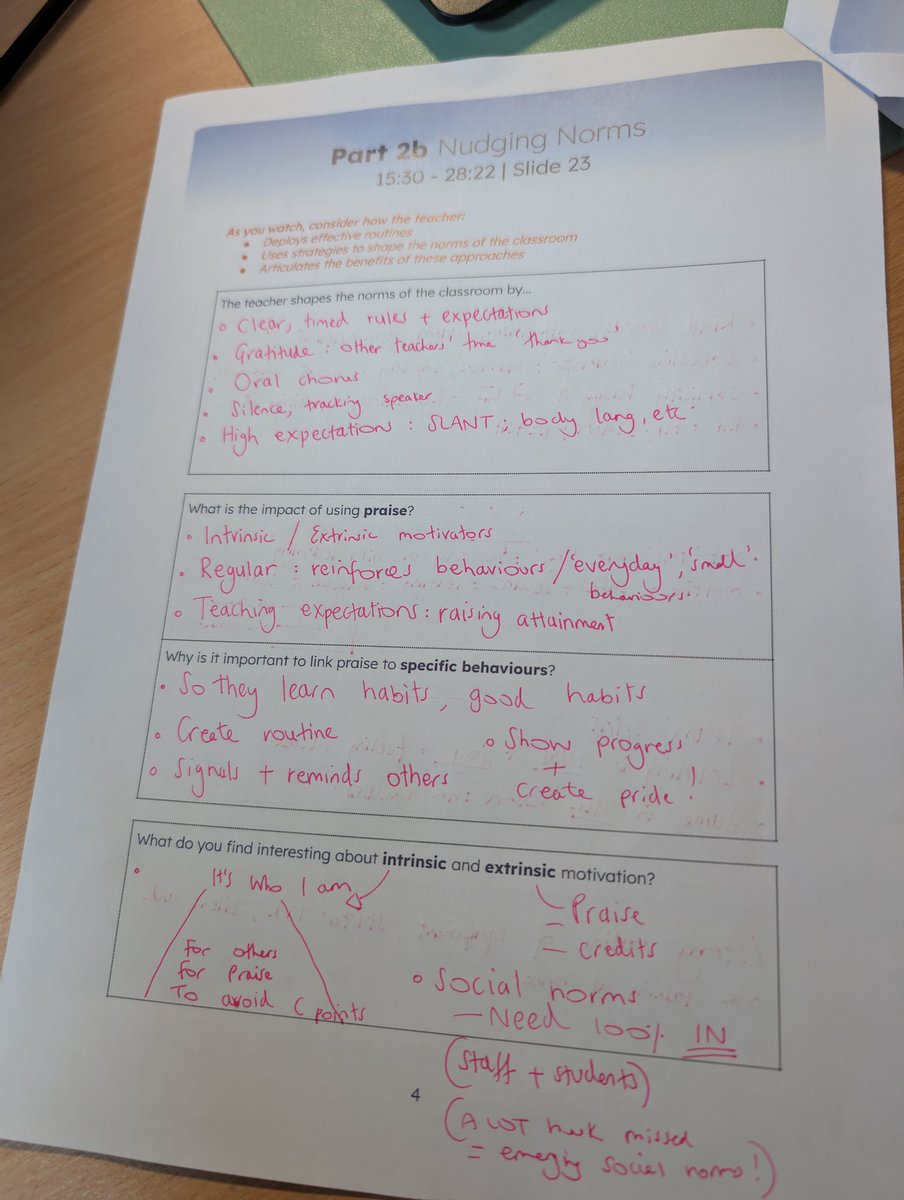 Part 2b Nudging Norms
15:30 - 28:22 | Slide 23
As you watch, consider how the teacher:
• Deploys effective routines
• Uses strategies to shape the norms of the classroom
• Articulates the benefits of these approaches
The teacher shapes the norms of the classroom by...
• Clear, timed rules + expectations
• Gratitude : other teachers' time "thank you"
• Oral chorus
• Silence, tracking speaker
• High expectations : SLANT ; body lang, etc.
What is the impact of using praise?
• Intrinsic / Extrinsic motivators
• Regular : reinforces behaviours / 'everyday', 'small'
behaviours.
• Teaching expectations : raising attainment
Why is it important to link praise to specific behaviours?
• So they learn habits, good habits
• Create routine
• Signals + reminds others
• Show progress
+
create pride!
What do you find interesting about intrinsic and extrinsic motivation?
• It's who I am
for others
for praise
To avoid C points
- Praise
- credits
• Social norms
- Need 100% IN
(staff + students)
(A LOT missed
= emerging social norms!)
4